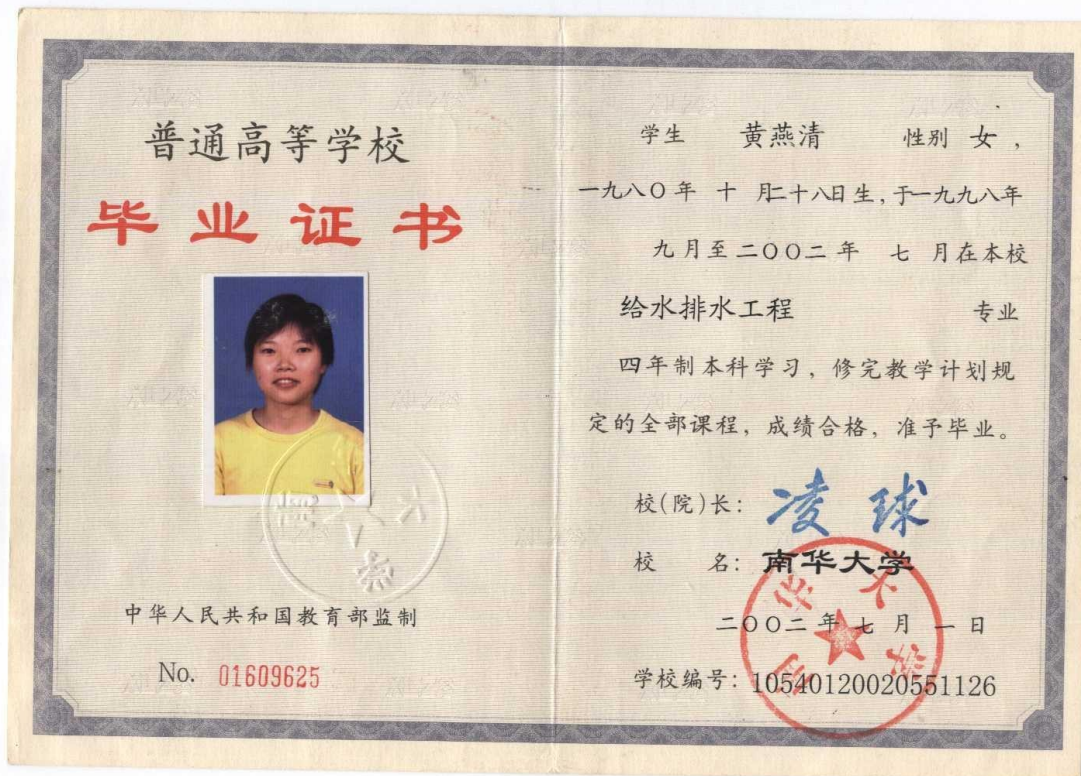 普通高等学校
毕业证书
中华人民共和国教育部监制
No. 01609625
学生 黄燕清 性别 女，
一九八〇年 十 月二十八日生，于一九九八年
九月至二〇〇二年 七 月在本校
给水排水工程 专业
四年制本科学习，修完教学计划规
定的全部课程，成绩合格，准予毕业。
校(院)长：凌球
校 名：南华大学
二〇〇二年七月一日
学校编号：105401200205​51126
南华大学